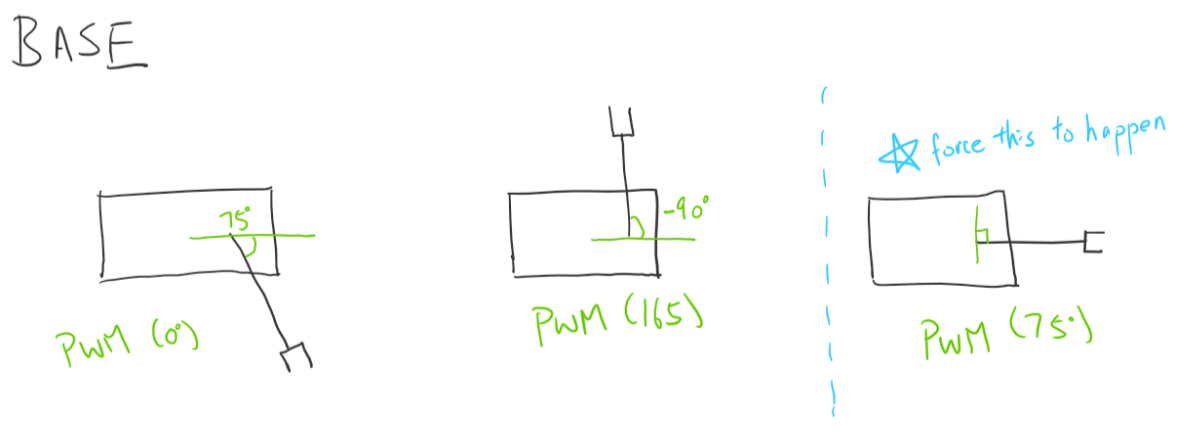 BASE
75°
PWM (0°)
-90°
PWM (165)
☆ force this to happen
PWM (75°)